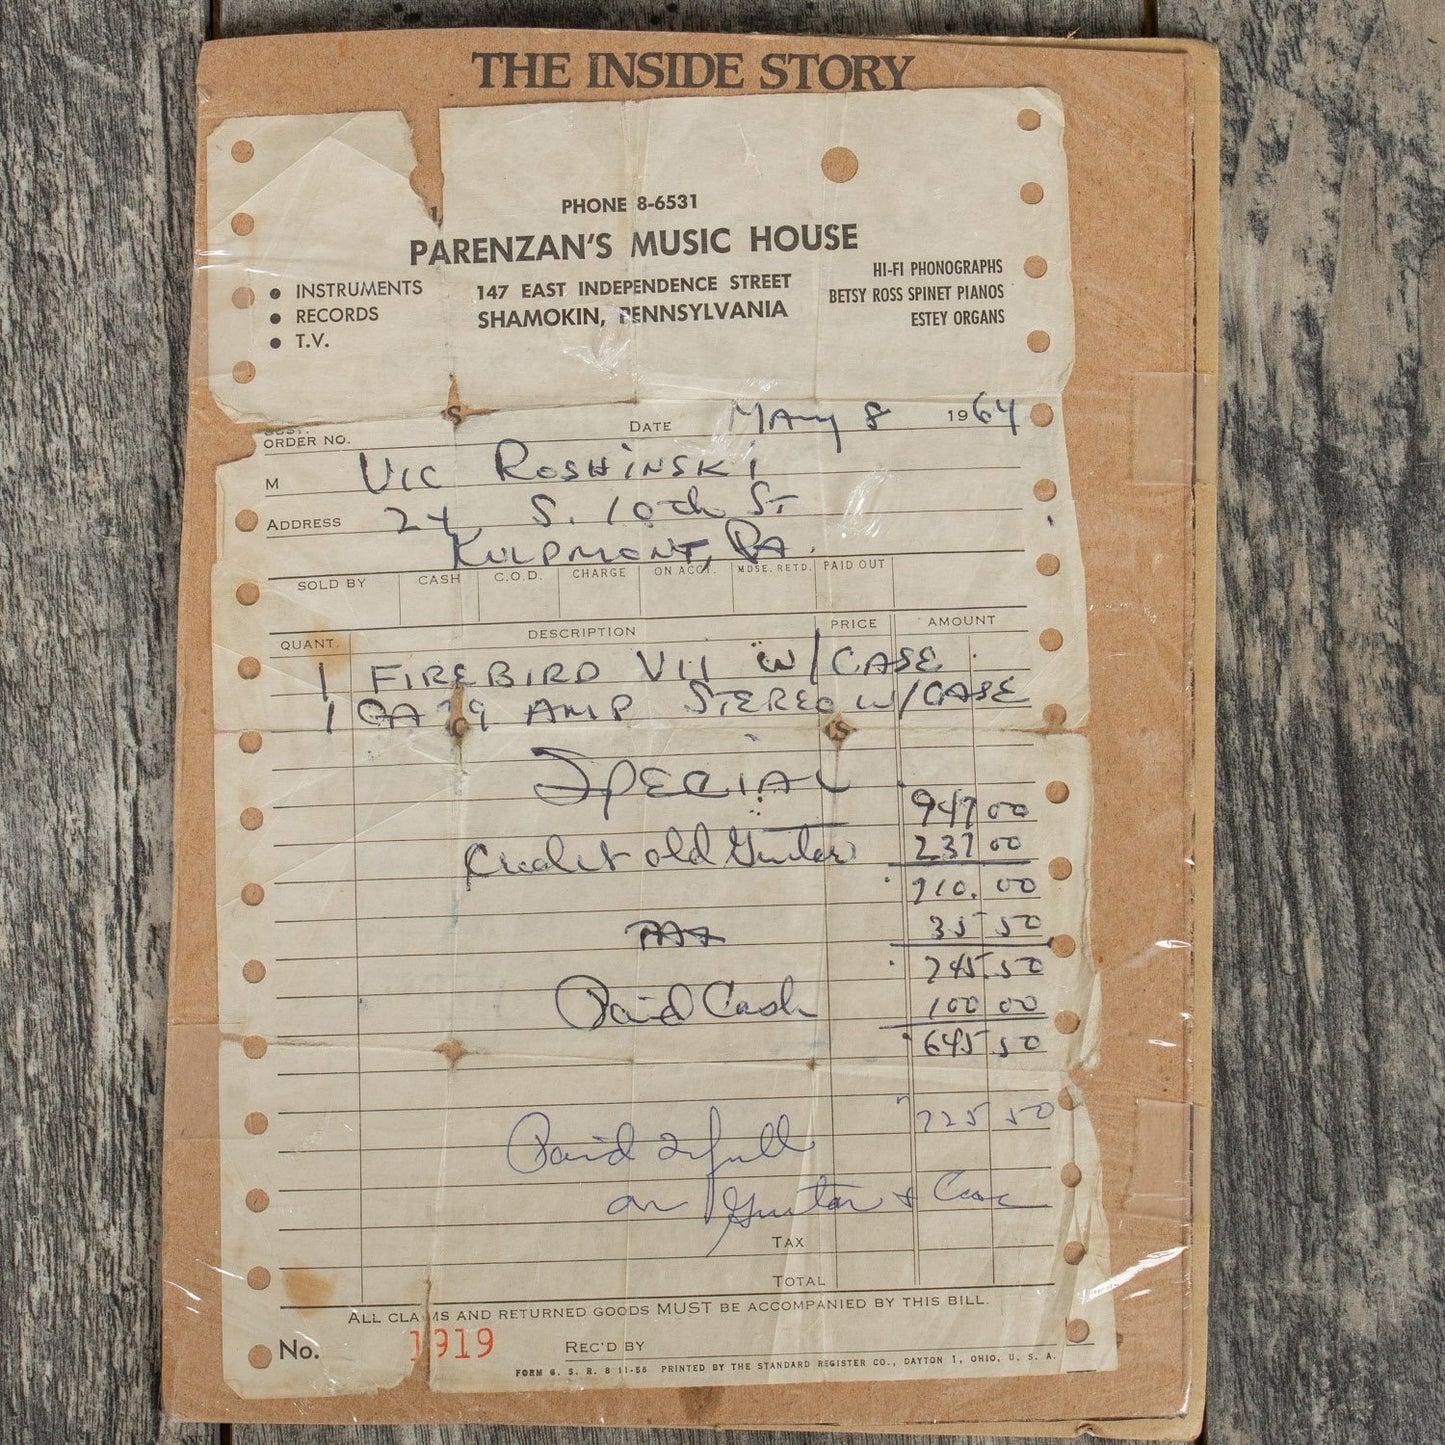 THE INSIDE STORY
PHONE 8-6531
PARENZAN'S MUSIC HOUSE
147 EAST INDEPENDENCE STREET
SHAMOKIN, PENNSYLVANIA
• INSTRUMENTS
• RECORDS
• T.V.
HI-FI PHONOGRAPHS
BETSY ROSS SPINET PIANOS
ESTEY ORGANS
CUST. ORDER NO. DATE MAY 8 1964
M VIC ROSHINSKI
ADDRESS 24 S. 10th ST
KULPMONT, PA.
SOLD BY CASH C.O.D. CHARGE ON ACCT. MDSE. RETD. PAID OUT
QUANT. DESCRIPTION PRICE AMOUNT
1 FIREBIRD VII W/CASE
1 GA79 AMP STEREO W/CASE
SPECIAL 947 00
Credit old Guitar 237 00
710. 00
TAX 35 50
745 50
Paid Cash 100 00
645 50
Paid in full 725 50
on Guitar + Case
TAX
TOTAL
ALL CLAIMS AND RETURNED GOODS MUST BE ACCOMPANIED BY THIS BILL.
No. 1919 REC'D BY
FORM G. S. R. 8 11-56 PRINTED BY THE STANDARD REGISTER CO., DAYTON 1, OHIO, U. S. A.